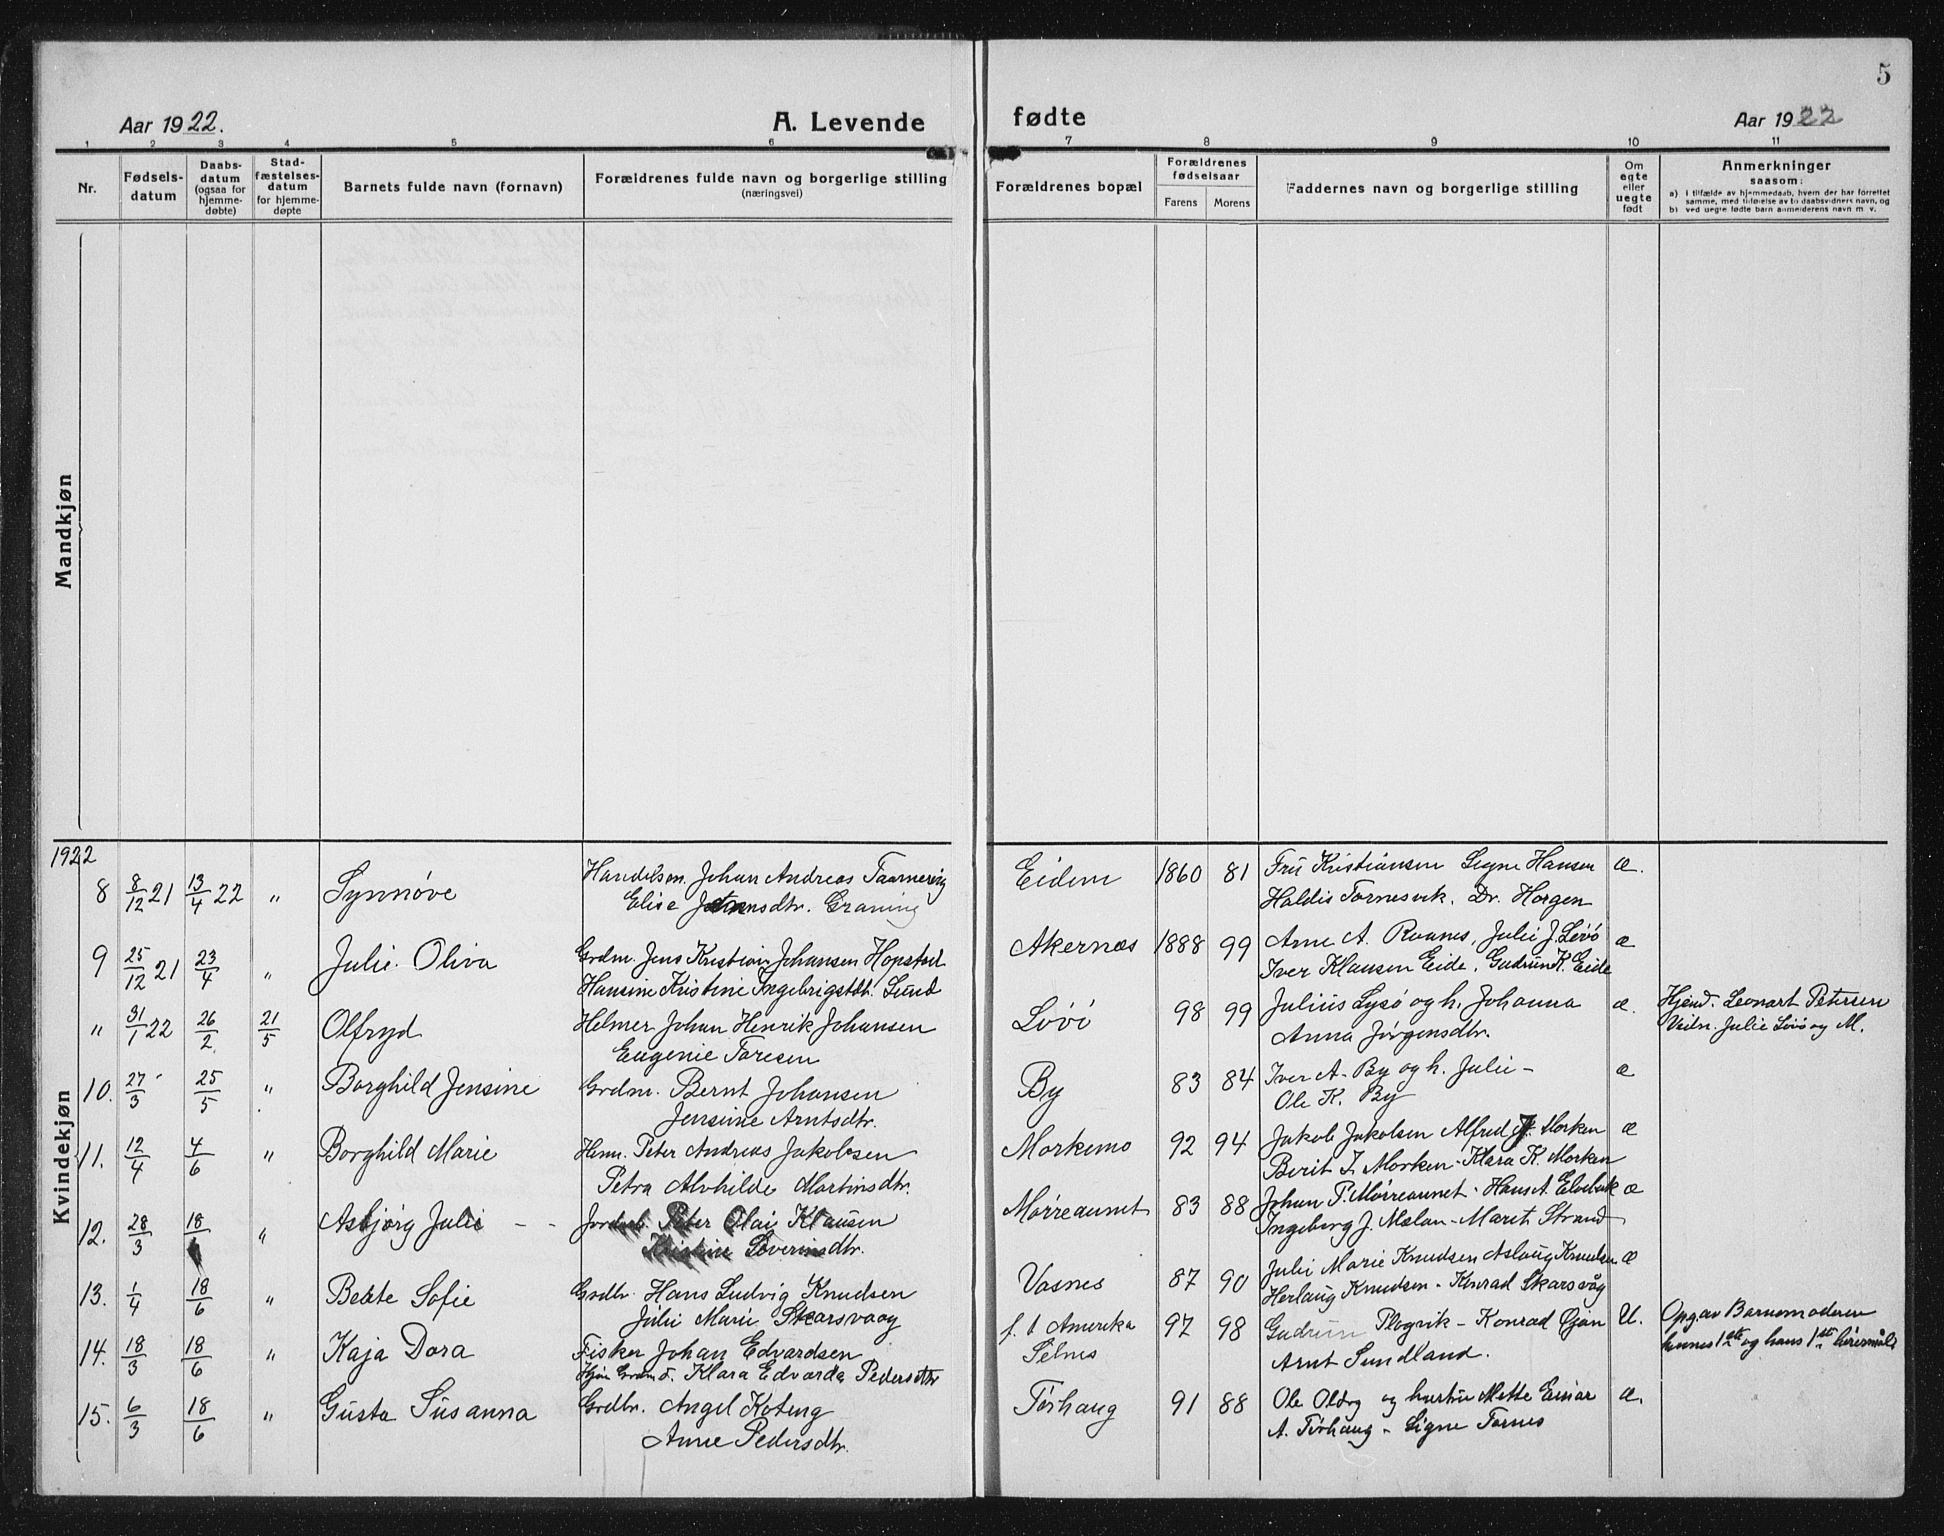 5
Aar 1922.
A. Levende
fødte
Aar 1922
1 2 3 4 5 6 7 8 9 10 11
Nr.
Fødsels-
datum
Daabs-
datum
(ogsaa for
hjemme-
døbte)
Stad-
fæstelses-
datum
for hjemme-
døpte
Barnets fulde navn (fornavn)
Forældrenes fulde navn og borgerlige stilling
(næringsvei)
Forældrenes bopæl
Forældrenes
fødselsaar
Farens
Morens
Faddernes navn og borgerlige stilling
Om
egte
eller
uegte
født
Anmerkninger
saasom:
a) i tilfælde av hjemmedaab, hvem der har forrettet
samme, med tilføielse av to daabsvidners navn, og
b) ved uegte fødte barn anmelderens navn m. v.
Mandkjøn
Kvindekjøn
1922
8 8/12 21 13/4 22 " Synnøve Handelsm. Johan Andreas Taarnerey Eidem 1860 81 Fru Kristiansen Signe Hansen æ.
Elise Graning Haldis Tornesvik. Dr. Horgen
9 25/12 21 23/4 " Julie Oliva Grdm. Jens Kristian Johansen Hopstad Akernes 1888 99 Arne A. Raanes, Julie J. Løvø æ
Hansine Kristine Ingebrigtsdt. Lund Iver Klausen Eide, Gudrun K. Eide
" 31/1 22 26/2 21/5 Olfryd Helmer Johan Henrik Johansen Løvö 98 99 Julius Lysø og h. Johanna æ. Hjemd. Leonart Petersen
Eugenie Toresen Anna Jørgensdtr. Vidn. Julie Løvø og M.
10. 27/3 25/5 " Borghild Jensine Grdm. Bernt Johansen By 83 84 Iver A. By og h. Julie - æ
Jensine Arntsdtr. Ole K. By
11. 12/4 4/6 " Borghild Marie Hmn. Peter Andreas Jakobsen Morkemo 92 94 Jakob Jakobsen Alfred Morken æ
Petra Alvhilde Martinsdtr. Berit J. Morken - Klara K. Morken
12. 28/3 18/ " Asbjørg Julie - - Peter Olai Klausen Mørreaunet 83 88 Johan P. Mørreaunet - Hans A. Elvebak æ
Kristine Severinsdtr. Ingeborg J. Mælan - Marit Strand
13. 1/4 18/6 " Beate Sofie Grdbr. Hans Ludvig Knudsen Vasnes 87 90 Julie Marie Knudsen Aslaug Knudsen æ
Julie Marie Skarsvaag Herlaug Knudsen - Konrad Skarsvåg
14. 18/3 18/6 " Kaja Dora Fisker Johan Edvardsen f. t. Amerika 97 98 Gudrun Plogvik - Konrad Øian U. Opg. av Barnemoderen
Klara Edvarda Pedersdtr Selnes Arnt Sundland. hennes 1ste og hans 1ste leiermåls
15. 6/3 18/6 " Gusta Susanna Grdbr. Angel Koteng Tørhaug 91 88 Ole Oldøy og hustru Mette Einar æ.
Anne Pedersdtr. A. Tørhaug - Signe Tornes